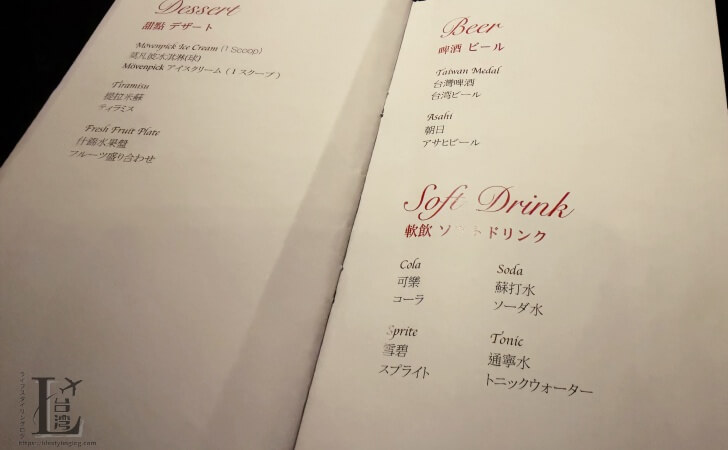 Dessert
甜點 デザート
Mövenpick Ice Cream (1 Scoop)
莫凡彼冰淇淋(球)
Mövenpick アイスクリーム (1 スクープ)
Tiramisu
提拉米蘇
ティラミス
Fresh Fruit Plate
什錦水果盤
フルーツ盛り合わせ
Beer
啤酒 ビール
Taiwan Medal
台灣啤酒
台湾ビール
Asahi
朝日
アサヒビール
Soft Drink
軟飲 ソフトドリンク
Cola
可樂
コーラ
Soda
蘇打水
ソーダ水
Sprite
雪碧
スプライト
Tonic
通寧水
トニックウォーター
L
台湾